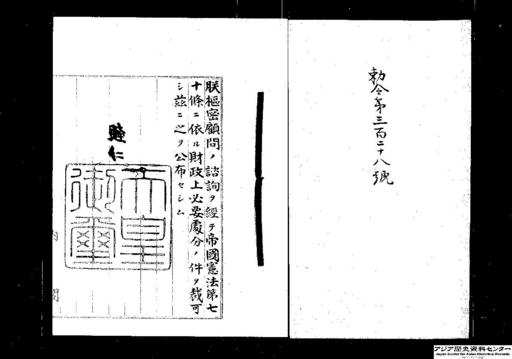 勅令第三百二十八號
朕樞密顧問ノ諮詢ヲ經テ帝國憲法第七
十條ニ依ル財政上必要處分ノ件ヲ裁可
シ茲ニ之ヲ公布セシム
睦仁
天皇
御璽
アジア歴史資料センター
Japan Center for Asian Historical Records